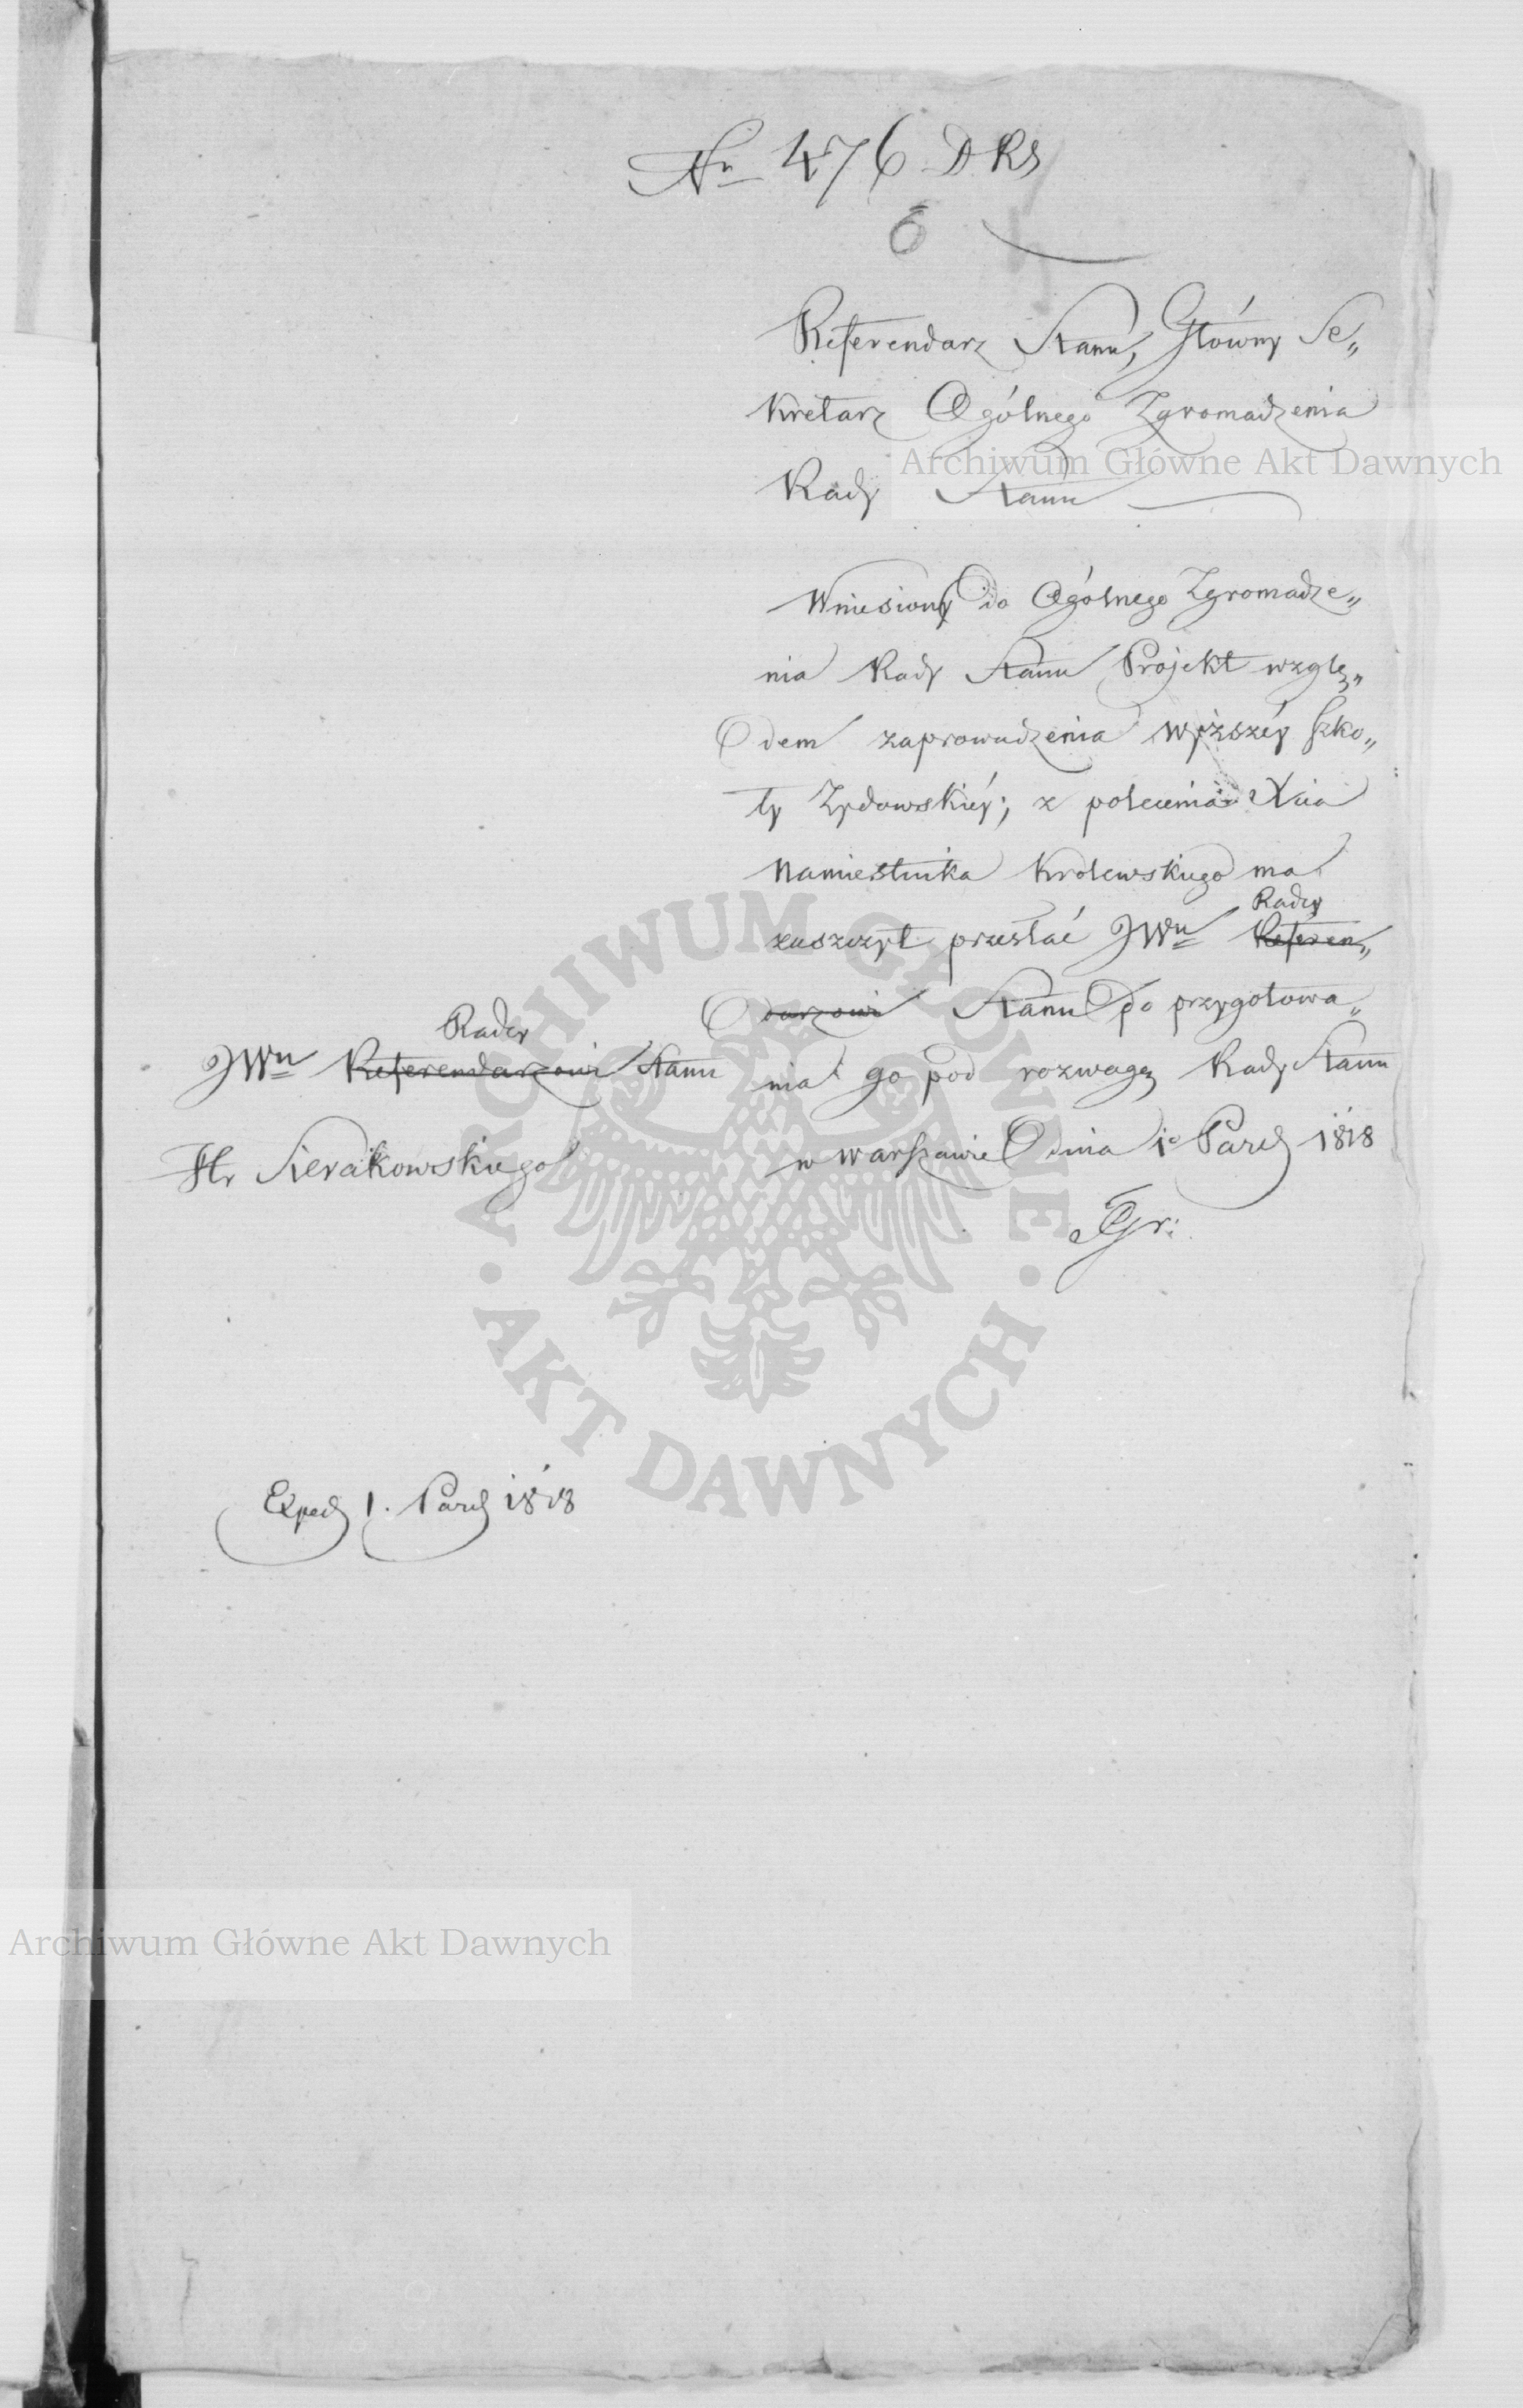 Nr 476 DRS
6
Referendarz Stanu, Główny Se„
kretarz Ogólnego Zgromadzenia
Rady Stanu
Archiwum Główne Akt Dawnych
Wniesiony do Ogólnego Zgromadze„
nia Rady Stanu Projekt wzglę„
dem zaprowadzenia wyższéy szko„
ły Zydowskiéy; z polecenia Xcia
Namiestnika Krolewskiego ma
zaszczyt przesłać JWu Radcy Referen„
darzowi Stanu do przygotowa„
nia go pod rozwagę Rady Stanu
w Warszawie dnia 1o Paźd 1818
JWu Radcy Referendarzowi Stanu
Hr Sierakowskiego
Exped 1. Paźd 1818
ARCHIWUM GŁÓWNE
· AKT DAWNYCH ·
Archiwum Główne Akt Dawnych